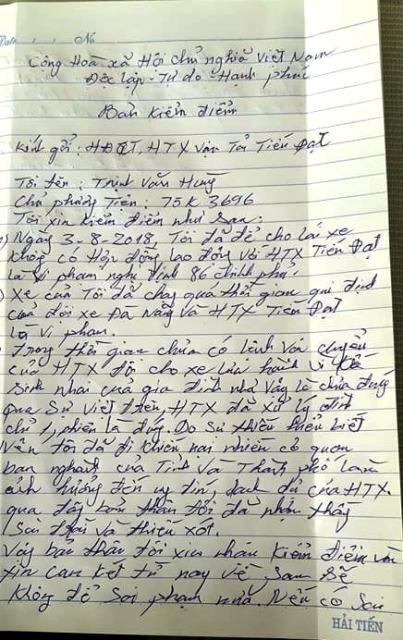 Date / / No
Cộng Hoà xã Hội chủ nghĩa Việt Nam
Độc lập - Tự do - Hạnh phúc
Bản kiểm điểm
Kính gửi: HĐQT, HTX Vận Tải Tiến Đạt
Tôi tên: Trịnh Văn Hưng
Chủ phương Tiện: 75K 3696
Tôi xin kiểm điểm như sau:
) Ngày 3-8-2018, Tôi đã để cho lái xe
không có Hợp đồng lao động với HTX Tiến Đạt
là vi phạm nghị định 86 chính phủ.
) Xe của Tôi đã chạy quá thời gian qui định
của đội xe Đà Nẵng và HTX Tiến Đạt
là vi phạm.
Trong thời gian chưa có lệnh vận chuyển
của HTX tôi cho xe lưu hành vì
sinh nhai của gia đình như vậy là chưa đúng
qua sự việt trên, HTX đã xử lý đình
chỉ 1 phiên là đúng. Do sự thiếu hiểu biết
Nên tôi đã đi khiếu nại nhiều cơ quan
ban nghành của Tỉnh và Thành phố làm
ảnh hưởng đến uy tín, danh dự của HTX.
qua đây bản thân tôi đã nhận thấy
sai và thiếu xót.
Vậy bản thân tôi xin nhận kiểm điểm và
xin cam kết từ nay về sau sẽ
không để sai phạm nữa. Nếu có sai
HẢI TIẾN